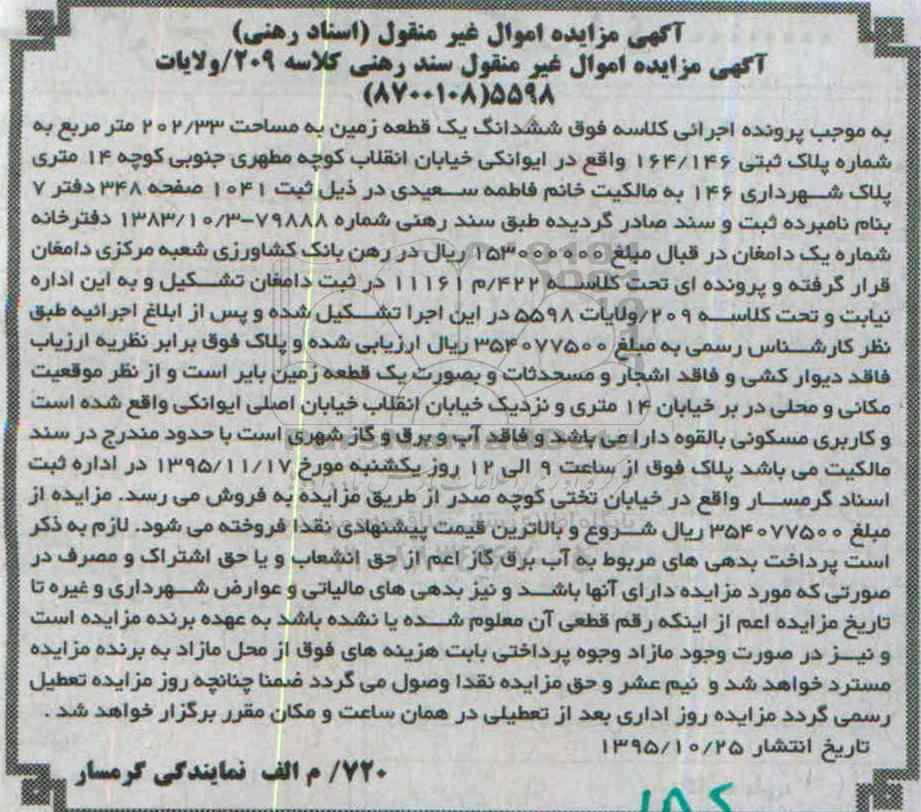 آگهی مزایده اموال غیر منقول (اسناد رهنی)
آگهی مزایده اموال غیر منقول سند رهنی کلاسه ۲۰۹/ولایات
۵۵۹۸(۸۷۰۰۱۰۸)
به موجب پرونده اجرائی کلاسه فوق ششدانگ یک قطعه زمین به مساحت ۲۰۲/۳۳ متر مربع به
شماره پلاک ثبتی ۱۶۴/۱۴۶ واقع در ایوانکی خیابان انقلاب کوچه مطهری جنوبی کوچه ۱۴ متری
پلاک شهرداری ۱۴۶ به مالکیت خانم فاطمه سعیدی در ذیل ثبت ۱۰۴۱ صفحه ۳۴۸ دفتر ۷
بنام نامبرده ثبت و سند صادر گردیده طبق سند رهنی شماره ۷۹۸۸۸-۱۳۸۳/۱۰/۳ دفترخانه
شماره یک دامغان در قبال مبلغ ۱۵۳۰۰۰۰۰۰ ریال در رهن بانک کشاورزی شعبه مرکزی دامغان
قرار گرفته و پرونده ای تحت کلاسه ۴۲۲/م ۱۱۱۶۱ در ثبت دامغان تشکیل و به این اداره
نیابت و تحت کلاسه ۲۰۹/ولایات ۵۵۹۸ در این اجرا تشکیل شده و پس از ابلاغ اجرائیه طبق
نظر کارشناس رسمی به مبلغ ۳۵۴۰۷۷۵۰۰ ریال ارزیابی شده و پلاک فوق برابر نظریه ارزیاب
فاقد دیوار کشی و فاقد اشجار و مسحدثات و بصورت یک قطعه زمین بایر است و از نظر موقعیت
مکانی و محلی در بر خیابان ۱۴ متری و نزدیک خیابان انقلاب خیابان اصلی ایوانکی واقع شده است
و کاربری مسکونی بالقوه دارا می باشد و فاقد آب و برق و گاز شهری است با حدود مندرج در سند
مالکیت می باشد پلاک فوق از ساعت ۹ الی ۱۲ روز یکشنبه مورخ ۱۳۹۵/۱۱/۱۷ در اداره ثبت
اسناد گرمسار واقع در خیابان تختی کوچه صدر از طریق مزایده به فروش می رسد. مزایده از
مبلغ ۳۵۴۰۷۷۵۰۰ ریال شروع و بالاترین قیمت پیشنهادی نقدا فروخته می شود. لازم به ذکر
است پرداخت بدهی های مربوط به آب برق گاز اعم از حق انشعاب و یا حق اشتراک و مصرف در
صورتی که مورد مزایده دارای آنها باشد و نیز بدهی های مالیاتی و عوارض شهرداری و غیره تا
تاریخ مزایده اعم از اینکه رقم قطعی آن معلوم شده یا نشده باشد به عهده برنده مزایده است
و نیز در صورت وجود مازاد وجوه پرداختی بابت هزینه های فوق از محل مازاد به برنده مزایده
مسترد خواهد شد و نیم عشر و حق مزایده نقدا وصول می گردد ضمنا چنانچه روز مزایده تعطیل
رسمی گردد مزایده روز اداری بعد از تعطیلی در همان ساعت و مکان مقرر برگزار خواهد شد.
تاریخ انتشار ۱۳۹۵/۱۰/۲۵
۷۲۰/ م الف نمایندگی گرمسار